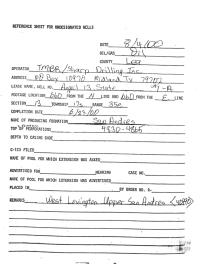 REFERENCE SHEET FOR UNDESIGNATED WELLS
DATE 8/4/00
OIL/GAS Oil
COUNTY Lea
OPERATOR TMBR/Sharp Drilling Inc.
ADDRESS PO Box 10970 Midland Tx 79702
LEASE NAME, WELL NO. Angel 13 State #1-A
FOOTAGE LOCATION 660 FROM THE N LINE AND 660 FROM THE E LINE
SECTION 13 TOWNSHIP 17s RANGE 35e
COMPLETION DATE
NAME OF PRODUCING FORMATION San Andres
TOP OF PERFORATIONS 4830-4865
DEPTH TO CASING SHOE
C-123 FILED
NAME OF POOL FOR WHICH EXTENSION WAS ASKED
ADVERTISED FOR HEARING CASE NO.
NAME OF POOL FOR WHICH EXTENSION WAS ADVERTISED
PLACED IN BY ORDER NO. R-
REMARKS West Lovington Upper San Andres